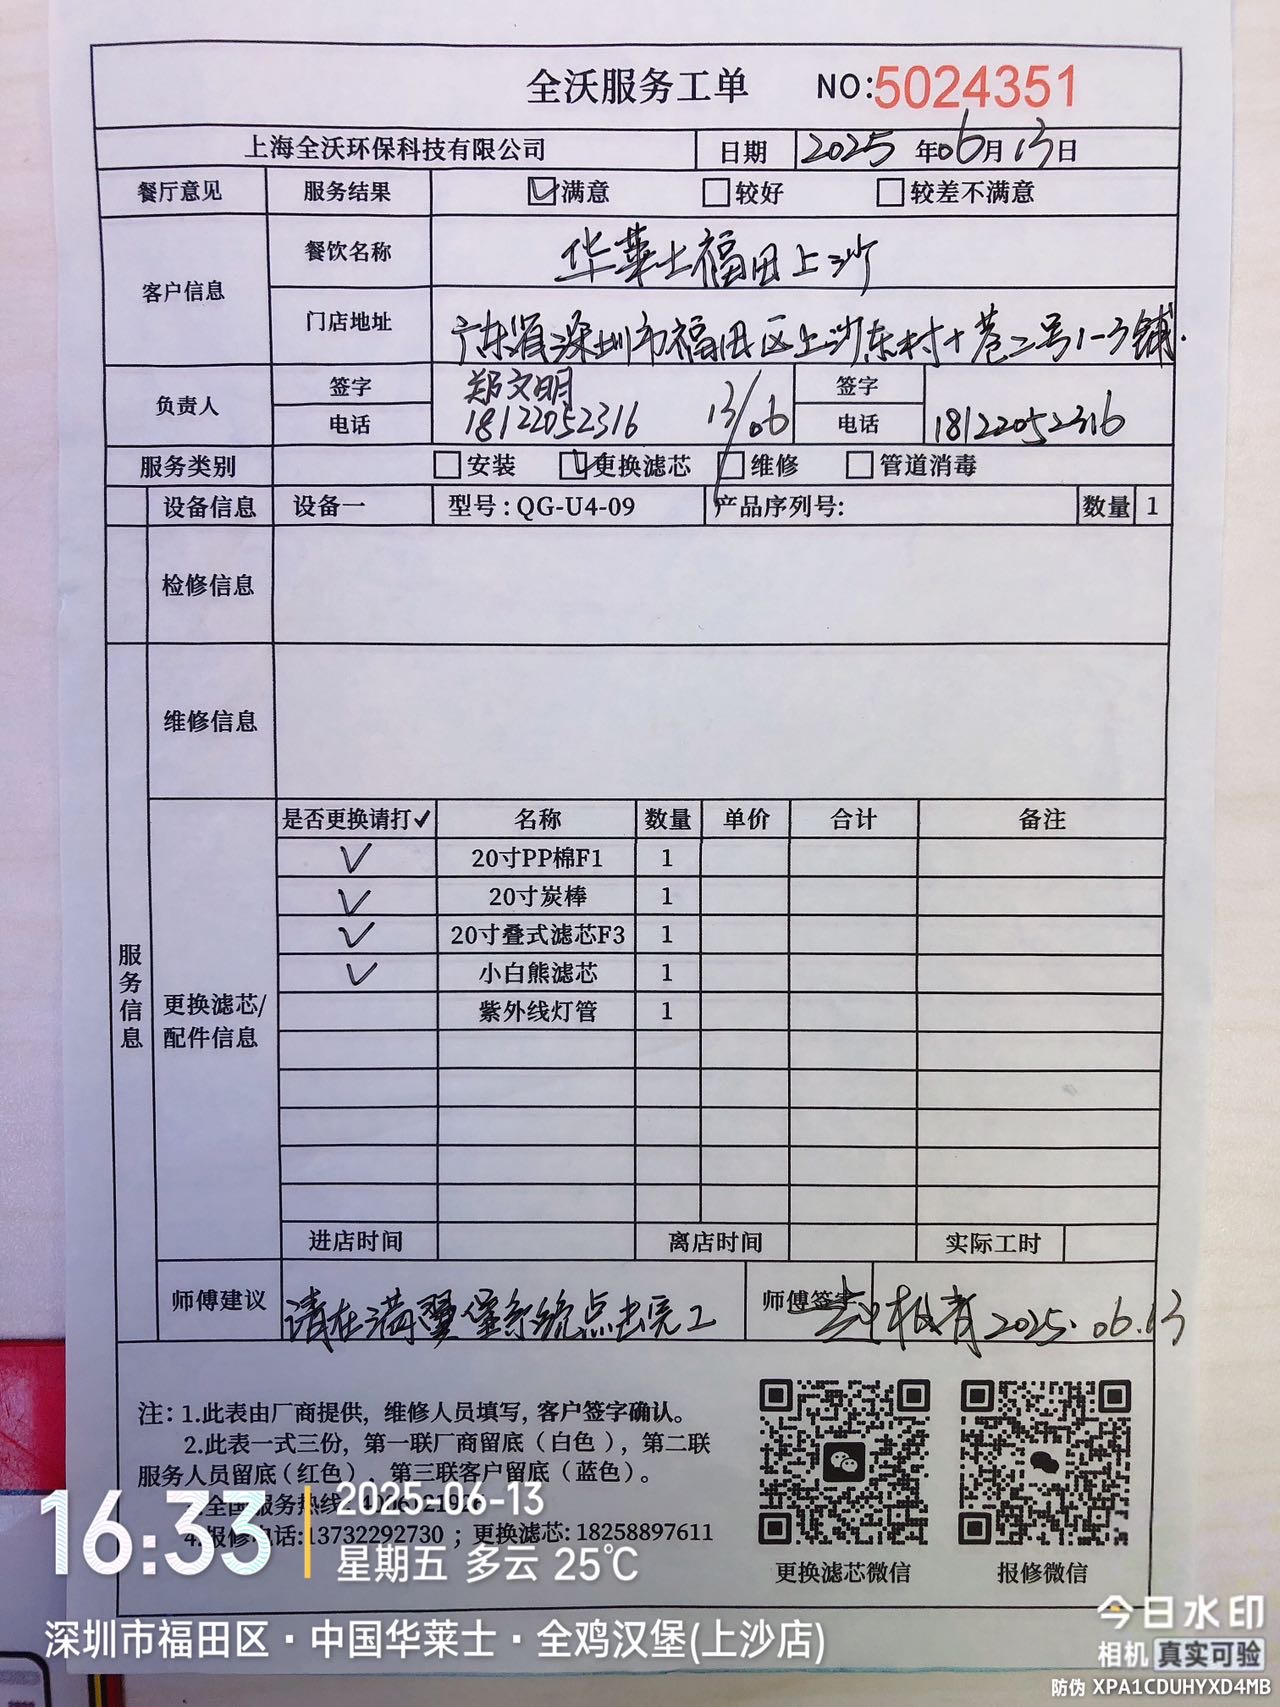 全沃服务工单 NO:5024351
上海全沃环保科技有限公司 日期 2025年06月13日
餐厅意见 服务结果 ☑满意 □较好 □较差不满意
客户信息 餐饮名称 华莱士福田上沙
门店地址 广东省深圳市福田区上沙东村十巷二号1-3铺.
负责人 签字 郑文明 13/06 签字
电话 18122052316 电话 18122052316
服务类别 □安装 ☑更换滤芯 □维修 □管道消毒
设备信息 设备一 型号:QG-U4-09 产品序列号: 数量 1
检修信息
维修信息
服务信息
更换滤芯/
配件信息
是否更换请打✓ 名称 数量 单价 合计 备注
✓ 20寸PP棉F1 1
✓ 20寸炭棒 1
✓ 20寸叠式滤芯F3 1
✓ 小白熊滤芯 1
紫外线灯管 1
进店时间 离店时间 实际工时
师傅建议 请在满翼堡系统点击完工 师傅签字 2025.06.13
注: 1.此表由厂商提供, 维修人员填写, 客户签字确认。
2.此表一式三份, 第一联厂商留底(白色), 第二联
服务人员留底(红色), 第三联客户留底(蓝色)。
全国服务热线:
4.报修电话:13732292730 ; 更换滤芯: 18258897611
更换滤芯微信 报修微信
16:33 2025-06-13
星期五 多云 25℃
深圳市福田区·中国华莱士·全鸡汉堡(上沙店)
今日水印
相机 真实可验
防伪 XPA1CDUHYXD4MB